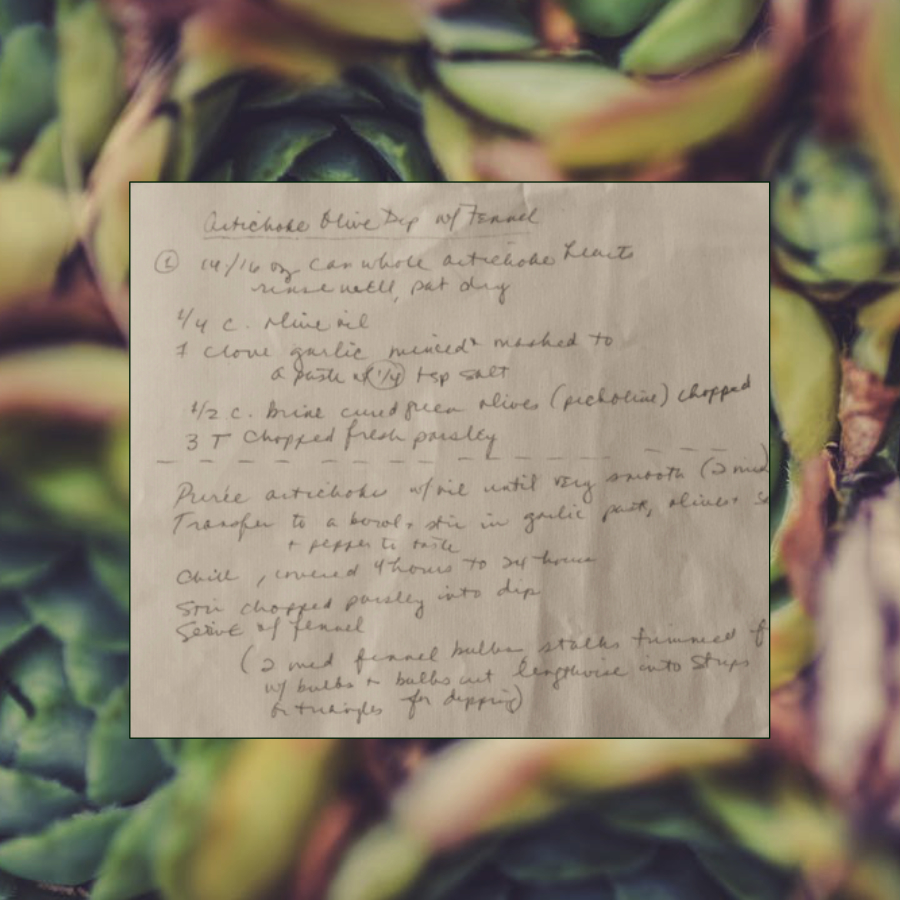 Artichoke Olive Dip w/ Fennel
① 14/16 oz can whole artichoke hearts
rinse well, pat dry
1/4 c. olive oil
1 clove garlic minced + mashed to
a paste w/ 1/4 tsp salt
1/2 c. brine cured green olives (picholine) chopped
3 T chopped fresh parsley
Purée artichokes w/ oil until very smooth (2 min
Transfer to a bowl + stir in garlic paste, olives +
+ pepper to taste
Chill, covered 4 hours to 24 hours
Stir chopped parsley into dip
Serve w/ fennel
(2 med fennel bulbs stalks trimmed f
w/ bulbs + bulbs cut lengthwise into strips
or triangles for dipping)